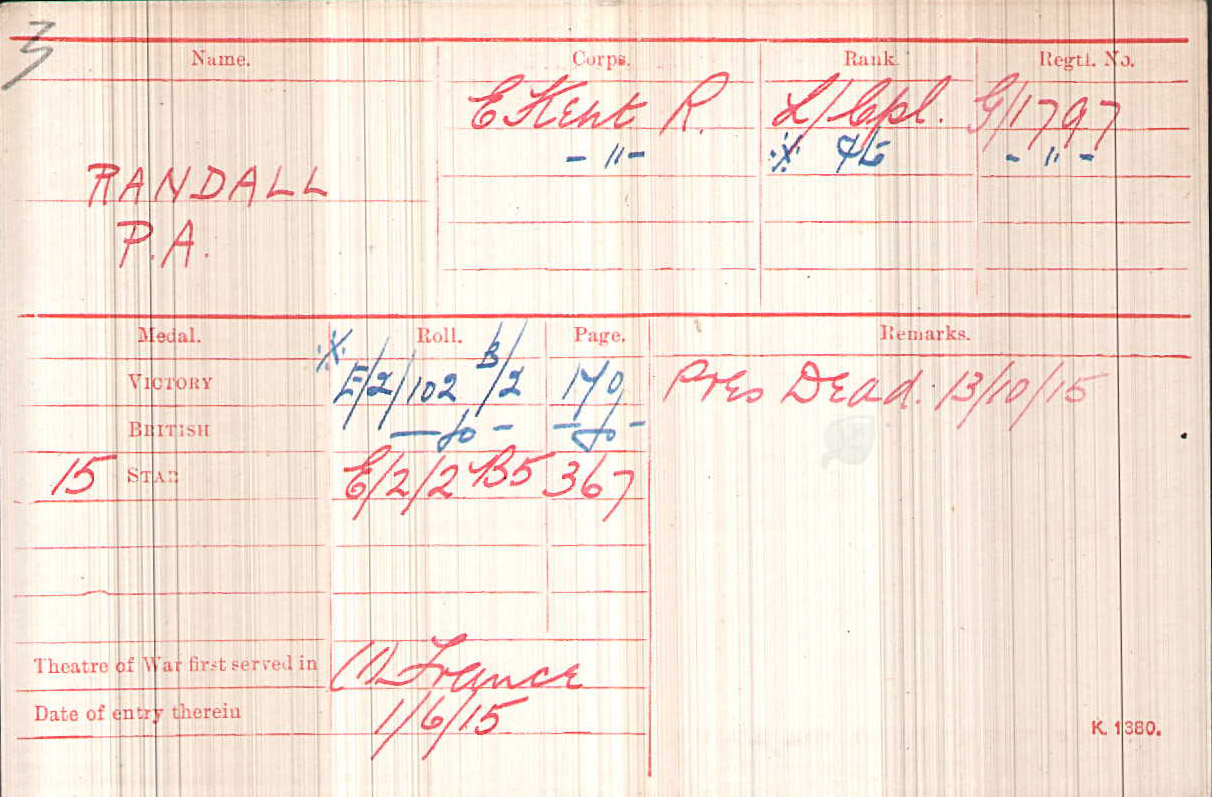 3
Name. Corps. Rank. Regtl. No.
E Kent R. L/Cpl. G/1797
-"- ·X· -"-
RANDALL
P.A.
Medal. Roll. Page. Remarks.
VICTORY ·X· E/2/102 B/2 170 Pres Dead. 13/10/15
BRITISH — do - - do -
15 STAR E/2/2 B5 367
Theatre of War first served in (1) France
Date of entry therein 1/6/15
K. 1380.